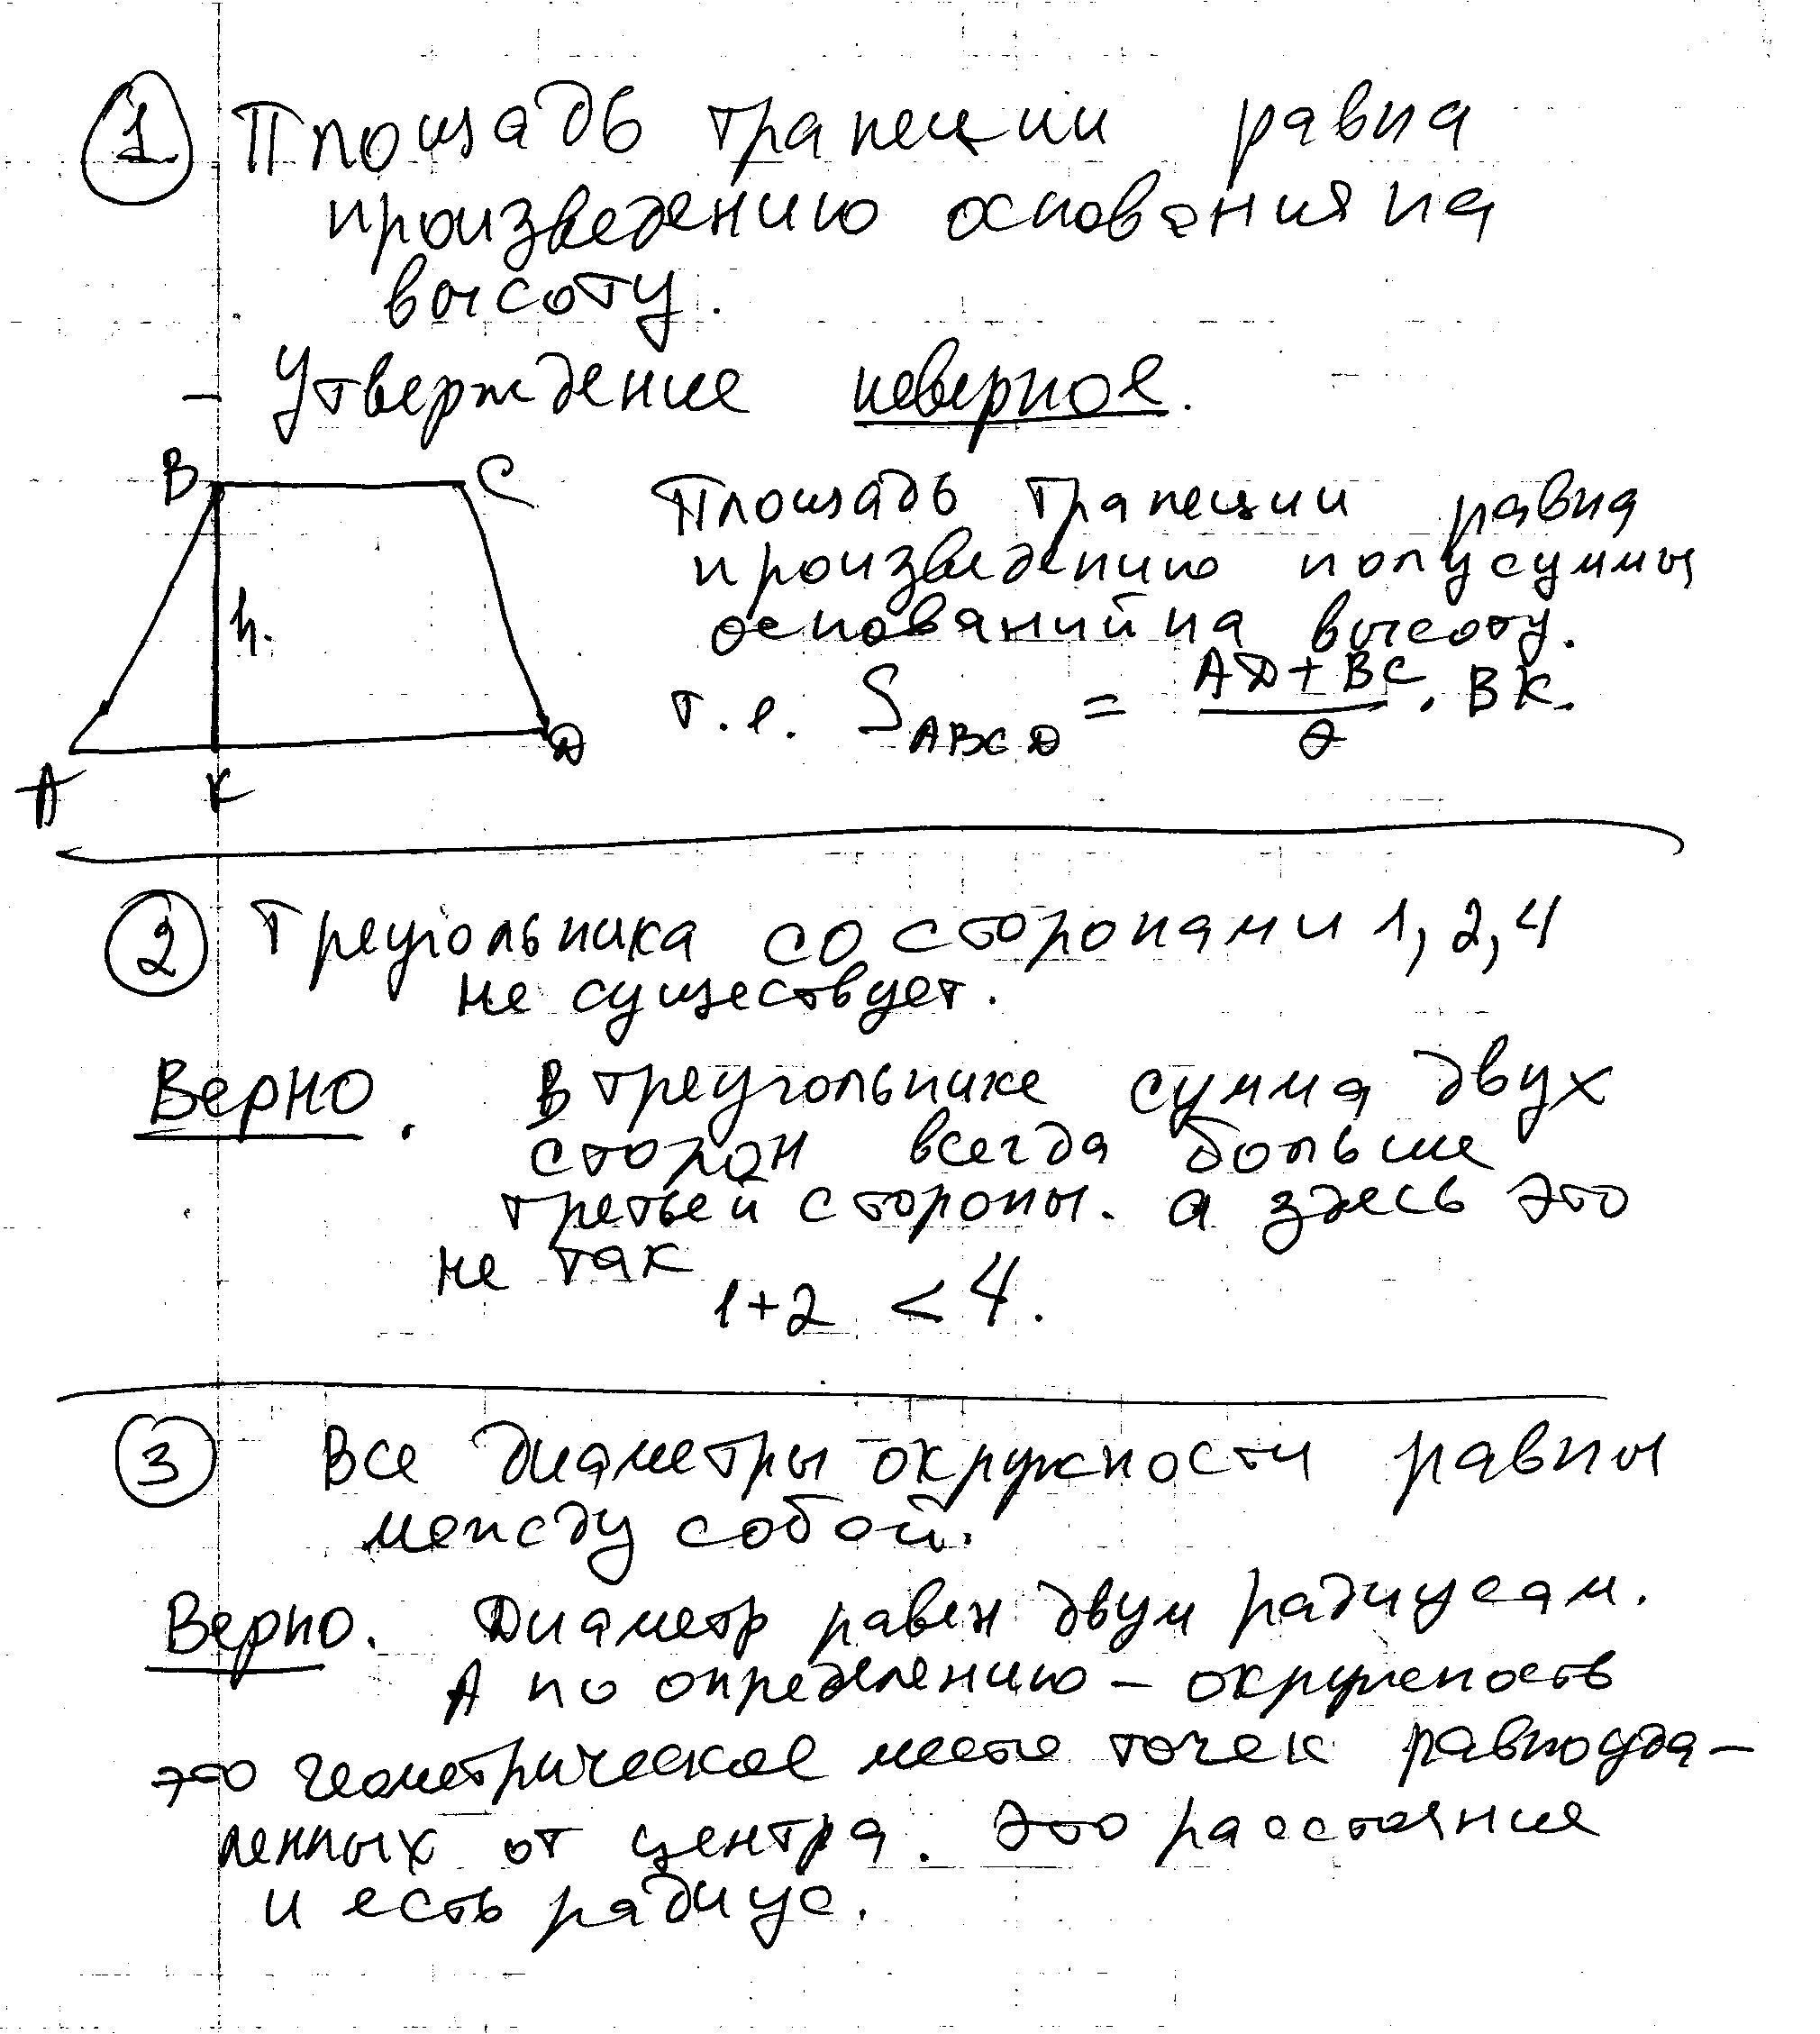 1 Площадь трапеции равна
произведению основания на
высоту.
- Утверждение неверное.
B C
h.
A K D
Площадь трапеции равна
произведению полусуммы
оснований на высоту.
т.е. S_ABCD = (AD + BC)/2 · BK.
2 Треугольника со сторонами 1, 2, 4
не существует.
Верно. В треугольнике сумма двух
сторон всегда больше
третьей стороны. а здесь это
не так
1+2 < 4.
3 Все диаметры окружности равны
между собой.
Верно. Диаметр равен двум радиусам.
А по определению – окружность
это геометрическое место точек равноуда-
ленных от центра. Это расстояние
и есть радиус.